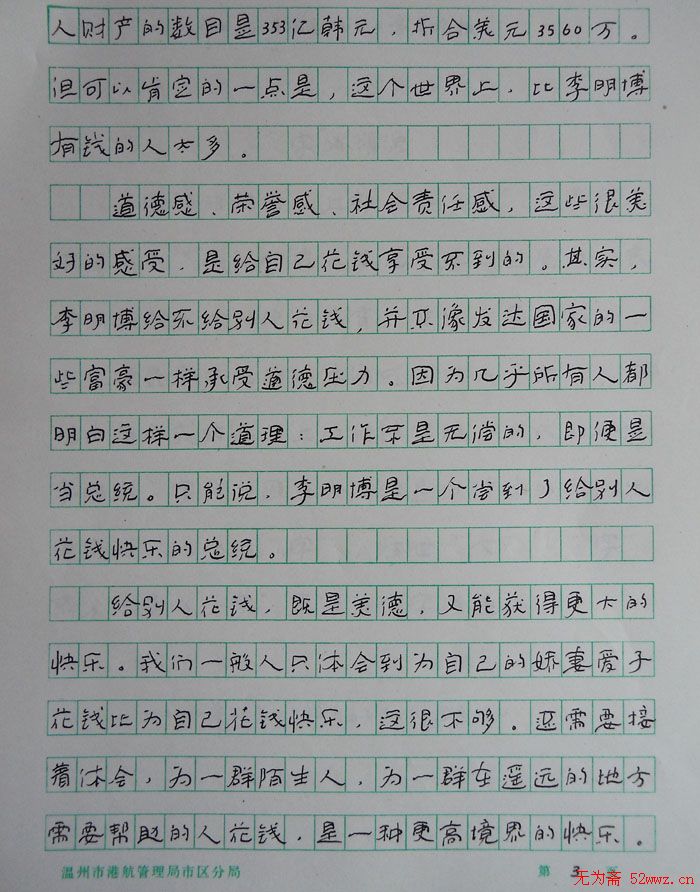 人财产的数目是353亿韩元，折合美元3560万。
但可以肯定的一点是，这个世界上，比李明博
有钱的人太多。
道德感、荣誉感、社会责任感，这些很美
好的感受，是给自己花钱享受不到的。其实，
李明博给不给别人花钱，并不像发达国家的一
些富豪一样承受道德压力。因为几乎所有人都
明白这样一个道理：工作不是无偿的，即便是
当总统。只能说，李明博是一个尝到了给别人
花钱快乐的总统。
给别人花钱，既是美德，又能获得更大的
快乐。我们一般人只体会到为自己的娇妻爱子
花钱比为自己花钱快乐，这很不够。还需要接
着体会，为一群陌生人，为一群在遥远的地方
需要帮助的人花钱，是一种更高境界的快乐。
温州市港航管理局市区分局 第 3 页
无为斋 52wwz.cn